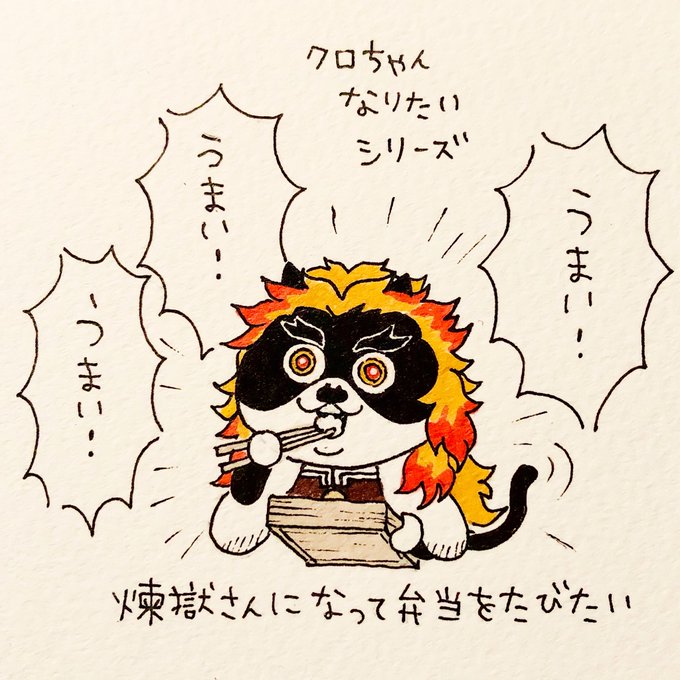 クロちゃん
なりたい
シリーズ
うまい!
うまい!
うまい!
煉獄さんになって弁当をたびたい